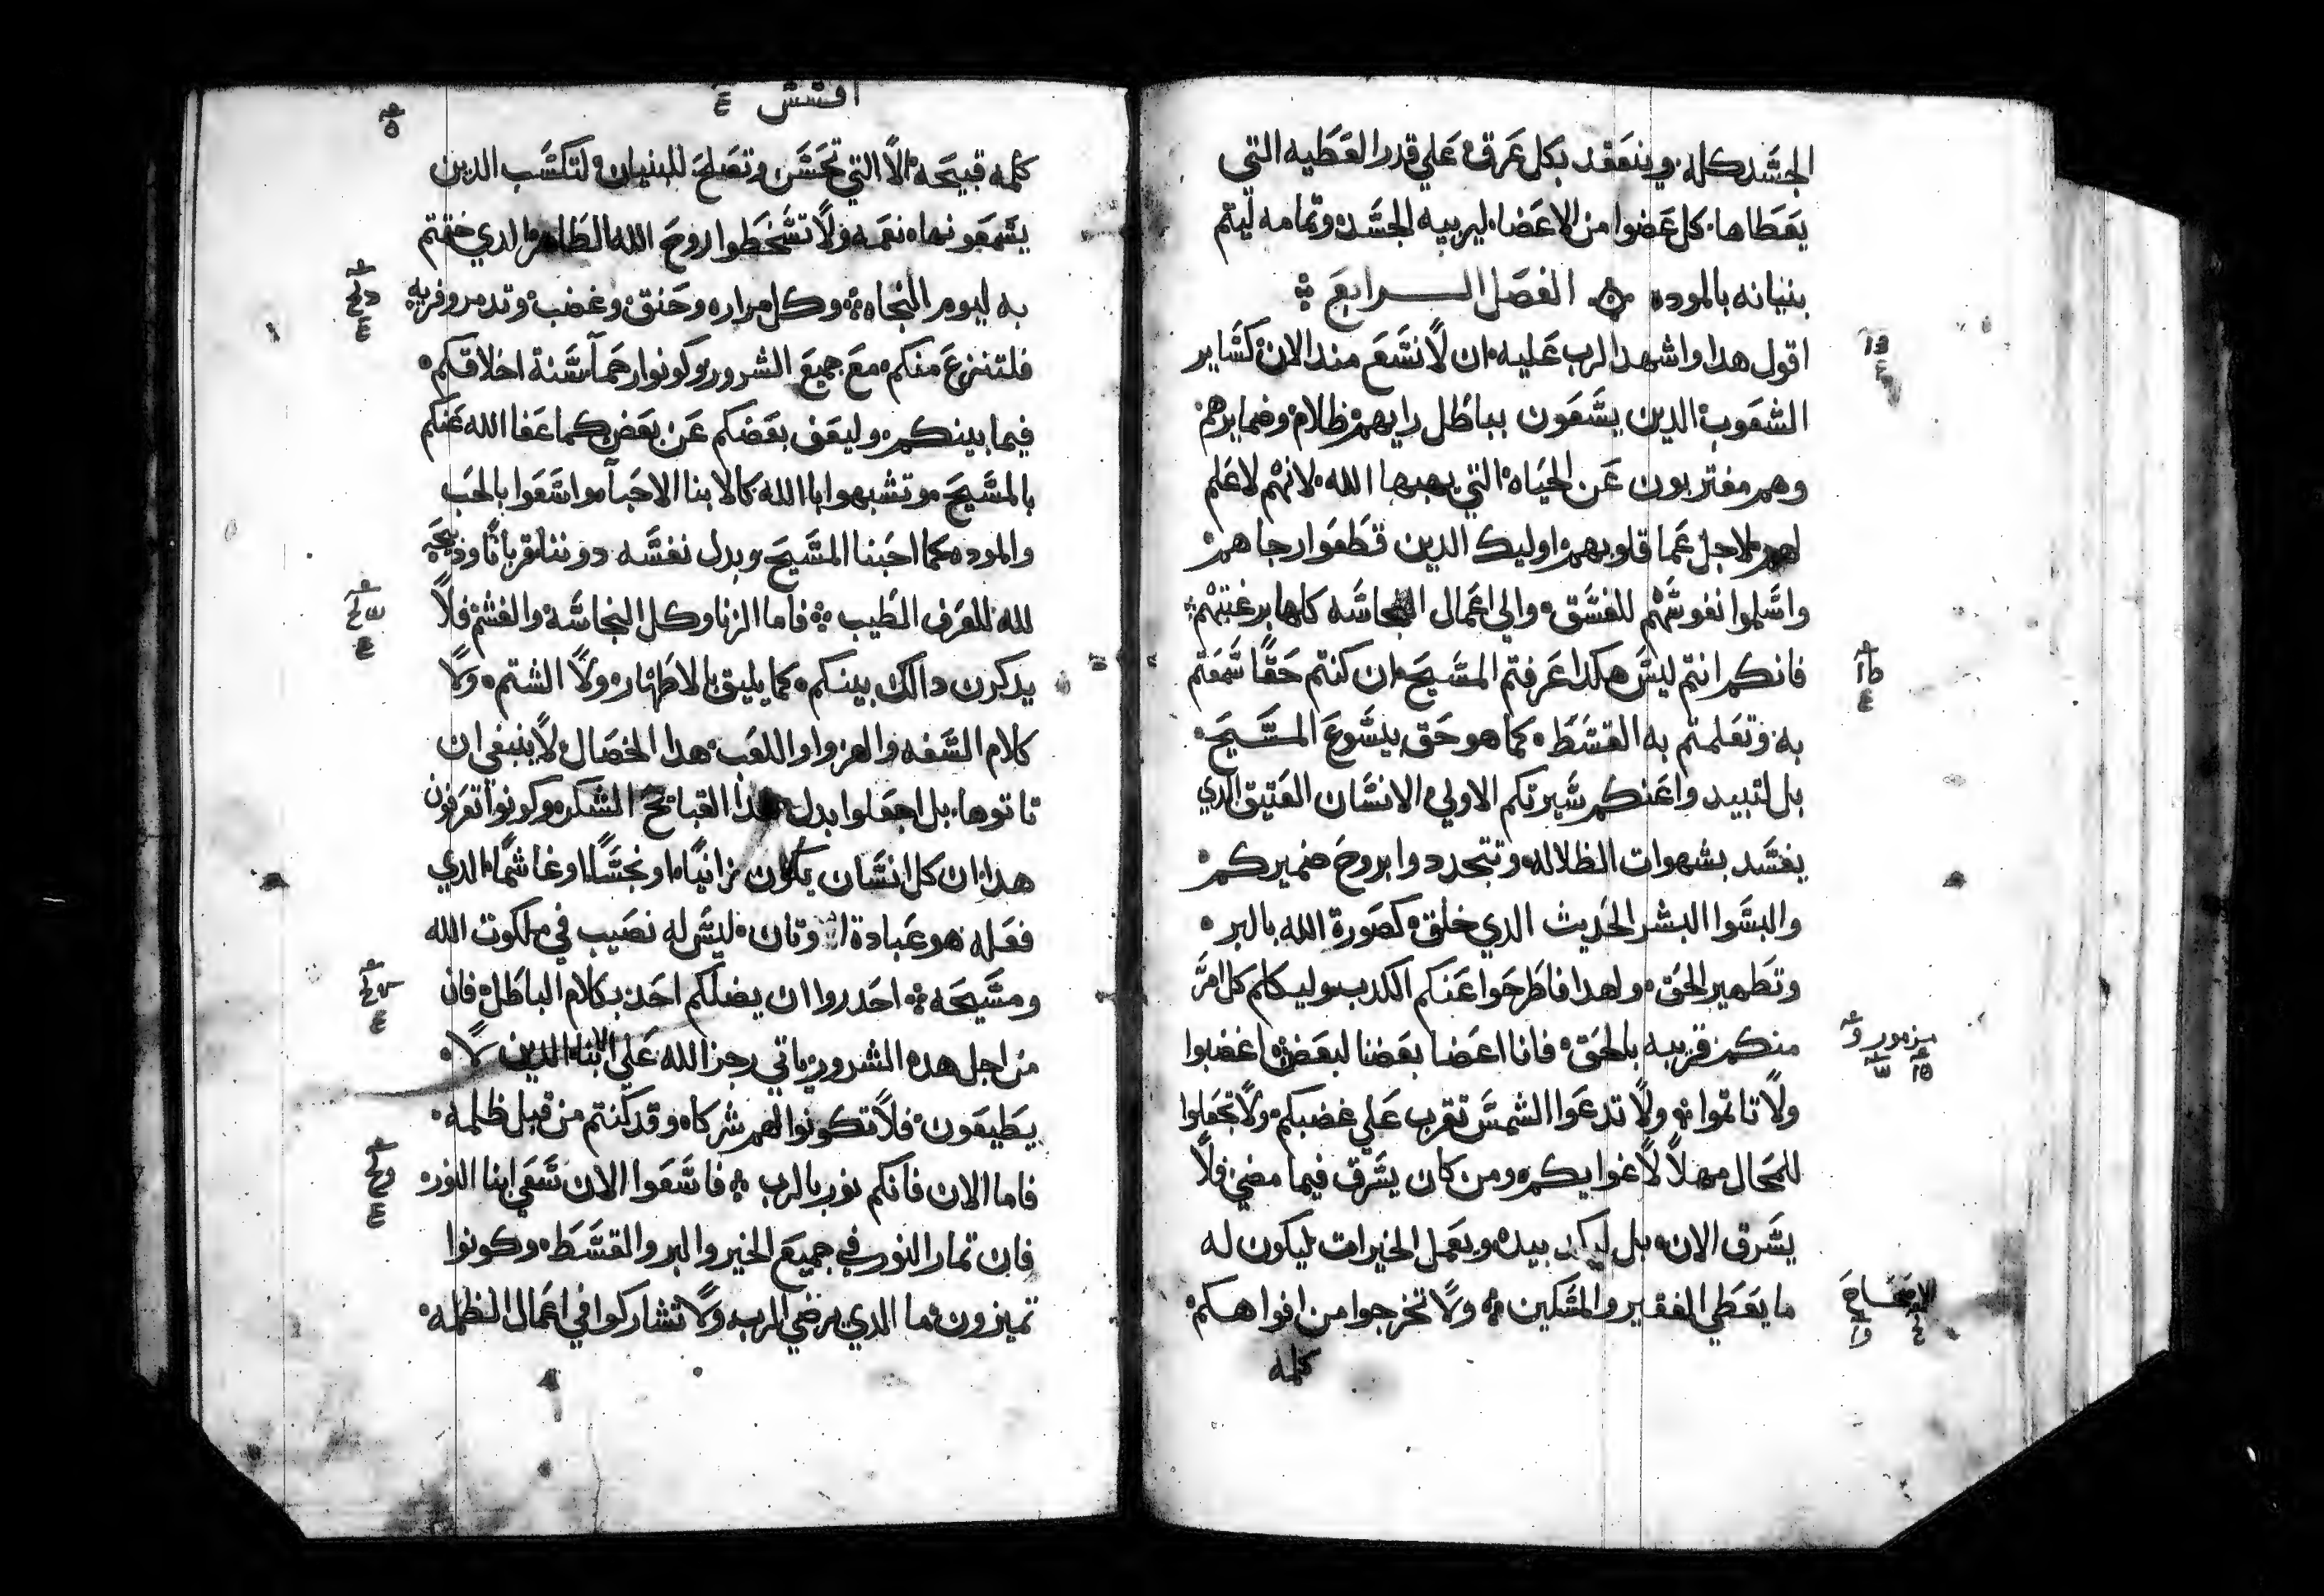 الجسد كله وينعقد بكل عرق علي قدر العطيه التي
يعطاها كل عضوا من الاعضا ليربيه الجسد وتمامه ليتم
بنيانه بالموده الفصل الرابع
اقول هدا واشهد الرب عليه ان لا نسع مند الان كساير
الشعوب الدين يسعون بباطل رايهم ظلام وضمايرهم
وهم مغتربون عن الحياه التي يهبها الله لانهم لا علم
لهم لاجل عما قلوبهم اوليك الدين قطعوا رجاهم
واسلموا نفوسهم للفسق والي اعمال النجاسه كلها برغبتهم
فانكم انتم ليس هكدا عرفتم المسيح ان كنتم حقا سمعتم
به وتعلمتم به القسط كما هو حق بيسوع المسيح
بل لتبيدوا عنكم سيرتكم الاولي الانسان العتيق الدي
يفسد بشهوات الظلاله وتتجددوا بروح ضميركم
والبسوا البشر الحديث الدي خلق كصورة الله بالبر
وتطهير الحق ولهدا فاطرحوا عنكم الكدب وليكلم كل امر
منكم قريبه بالحق فانا اعضا بعضنا لبعض اغضبوا
ولا تاتموا ولا تدعوا الشمس تغرب علي غضبكم ولا تجعلوا
للمحال مهلا لاغوايكم ومن كان يسرق فيما مضي فلا
يسرق الان بل ليكد بيده ويعمل الخيرات ليكون له
ما يعطي الفقير والمسكين ولا تخرجوا من افواهكم
كلمه
مزمور
افسس ع
كلمه قبيحه الا التي تحسن وتصلح للبنيان لتكسب الدين
يسمعونها نعمه ولا تسخطوا روح الله الطاهر الدي ختمتم
به ليوم النجاه وكل مراره وحنق وغضب وتدمر وفريه
فلتنزع منكم مع جميع الشرور وكونوا رحما سنة اخلاقكم
فيما بينكم وليعف بعضكم عن بعض كما عفا الله عنكم
بالمسيح وتشبهوا باالله كالابنا الاحبا واسعوا بالحب
والموده كما احبنا المسيح وبدل نفسه دوننا قربانا ودبيحه
لله للعرف الطيب فاما الزنا وكل النجاسه والغشم فلا
يدكرن دالك بينكم كما يليق بالاطهار ولا الشتم ولا
كلام السفه والهزوا واللعب هدا الخصال لا ينبغي ان
تاتوها بل اجعلوا بدل هدا القبايح الشكر وكونوا تعرفون
هدا ان كل انسان يكون زانيا او نجسا او غاشما الدي
فعله هو عبادة الاوتان ليس له نصيب في ملكوت الله
ومسيحه احدروا ان يضلكم احد بكلام الباطل فان
من اجل هده الشرور ياتي رجز الله علي الابنا الدين لا
يطيعون فلا تكونوا لهم شركاه وقد كنتم من قبل ظلمه
فاما الان فانكم نور بالرب فاسعوا الان سعي ابنا النور
فان تمار النور في جميع الخير والبر والقسط وكونوا
تميزون ما الدي يرضي الرب ولا تشاركوا في اعمال الظلمه